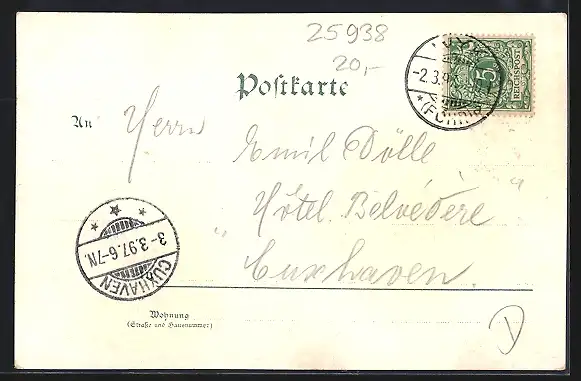 25938
20,-
Postkarte
WYK
-2.3.9
* (FÖHR)
5
REICHSPOST
An Herrn
Emil Dölle
„ Hôtel Belvédère "
Cuxhaven
CUXHAVEN
3-3.97.6-7N.
Wohnung
(Straße und Hausnummer)
D